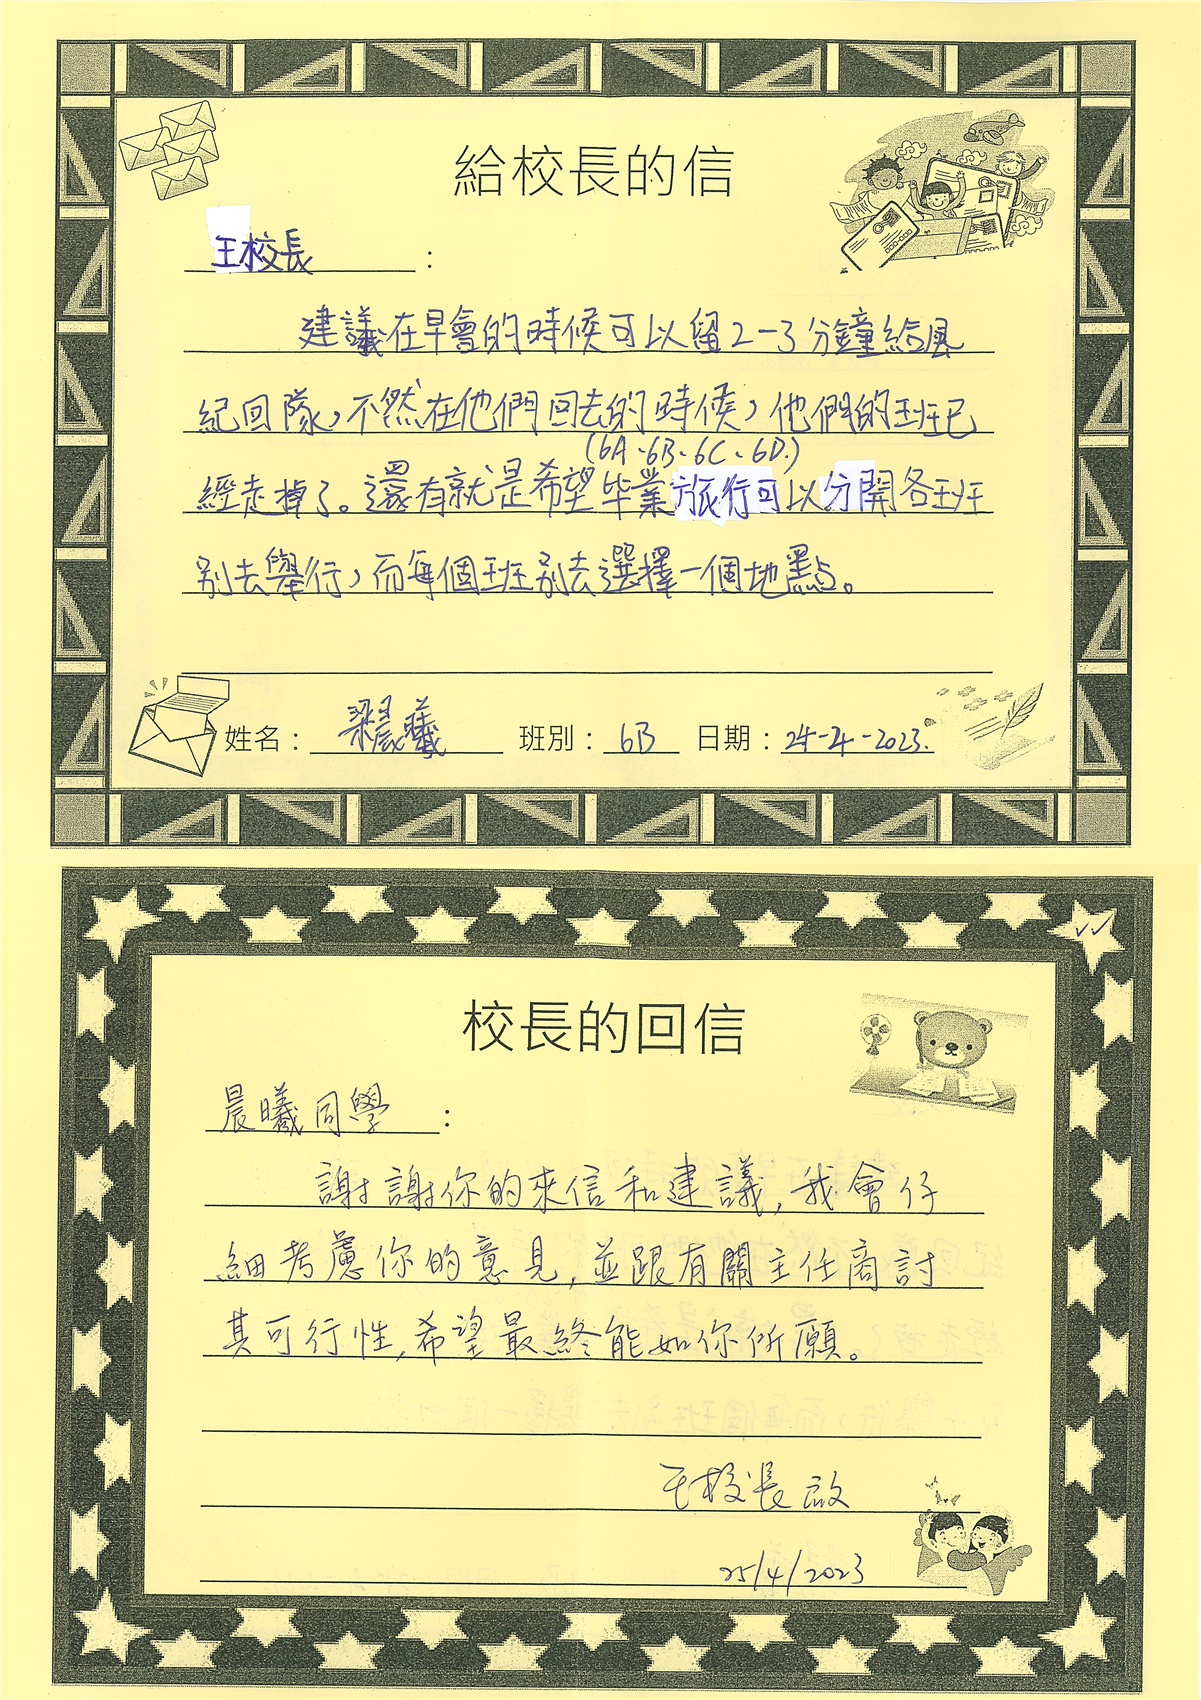 給校長的信
王校長：
建議在早會的時候可以留2-3分鐘給風
紀回隊，不然在他們回去的時候，他們的班已
(6A、6B、6C、6D)
經走掉了。還有就是希望畢業旅行可以分開各班
別去舉行，而每個班別去選擇一個地點。
姓名：梁晨曦 班別：6B 日期：24-4-2023.
校長的回信
晨曦同學：
謝謝你的來信和建議，我會仔
細考慮你的意見，並跟有關主任商討
其可行性，希望最終能如你所願。
王校長啟
25/4/2023